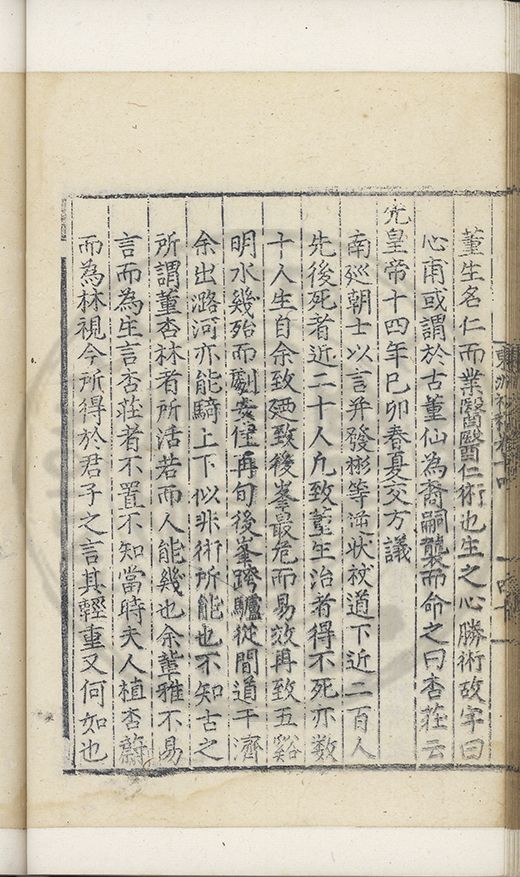 董生名仁而業醫醫仁術也生之心勝術故字曰
心甫或謂於古董仙為裔嗣襲而命之曰杏莊云
先皇帝十四年己卯春夏交方議
南廵朝士以言并發彬等逆狀被道下近二百人
先後死者近二十人凡致董生治者得不死亦數
十人生自余致廼致後峯最危而易效再致五谿
明水幾殆而劇安僅再旬後峯跨驢從間道千濟
余出潞河亦能騎上下似非術所能也不知古之
所謂董杏林者所活若而人能幾也余輩雅不易
言而為生言杏莊者不置不知當時夫人植杏蔚
而為林視今所得於君子之言其輕重又何如也